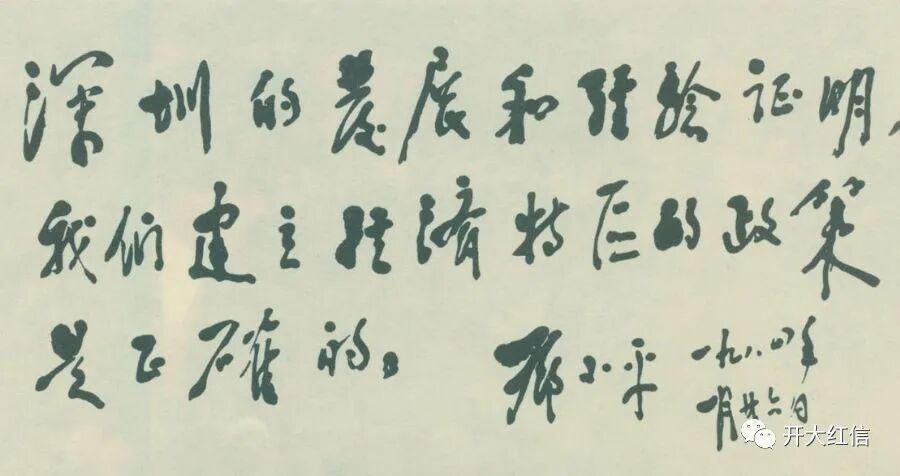 深圳的發展和經驗证明，
我们建立经济特区的政策
是正確的。
鄧小平 一九八四年
一月廿六日
开大红信